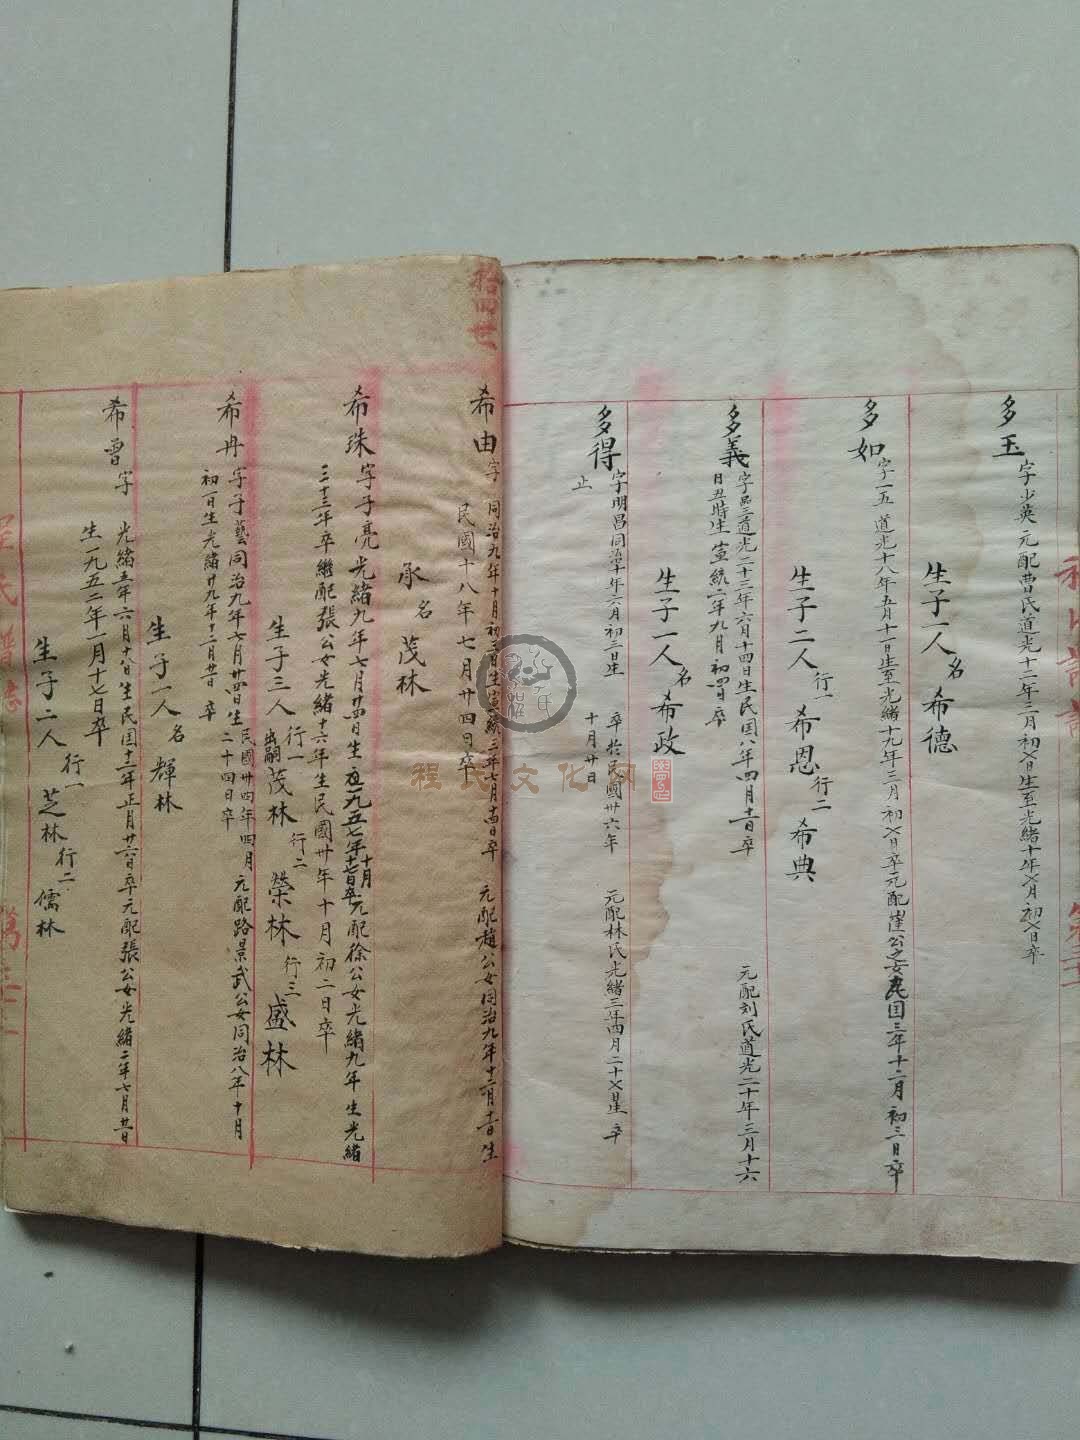 多玉
字少英 元配曹氏道光十二年二月初八日生至光緒十年七月初七日卒
生子一人
名
希德
多如
字一五 道光十八年五月十一日生至光緒十九年三月初七日卒元配崔公之女民国三年十二月初三日卒
生子二人
行一
希恩
行二
希典
多義
道光二十三年六月十四日生民国八年四月十一日卒 元配刘氏道光二十年三月十六
日丑時生宣統二年九月初四日卒
生子一人
名
希政
多得
字明昌同治十年二月初三日生 卒於民國卅六年 元配林氏光緒三年四月二十七星 卒
十月廿日
止
拾四世
希由
字 同治九年十月初三日生宣統三年七月十四日卒 元配趙公女同治九年十二月十一日生
民國十八年七月廿四日卒
承
名
茂林
希珠
字子亮 光緒九年七月廿四日生 一九五七年十月十七日卒元配徐公女光緒九年生光緒
三十三年卒繼配張公女光緒十六年生民國卅年十月初二日卒
生子三人
行一
出嗣
茂林
行二
榮林
行三
盛林
希丹
字子藝同治九年七月廿四日生民國卅四年四月 元配路景武公女同治八年十月
二十四日卒
初一日生光緒廿九年十二月廿日卒
生子一人
名
輝林
希曾
字 光緒五年六月十八日生民国十二年正月廿六日卒元配張公女光緒二年七月廿日
生一九五二年一月十七日卒
生子二人
行一
芝林
行二
儒林
程氏文化网